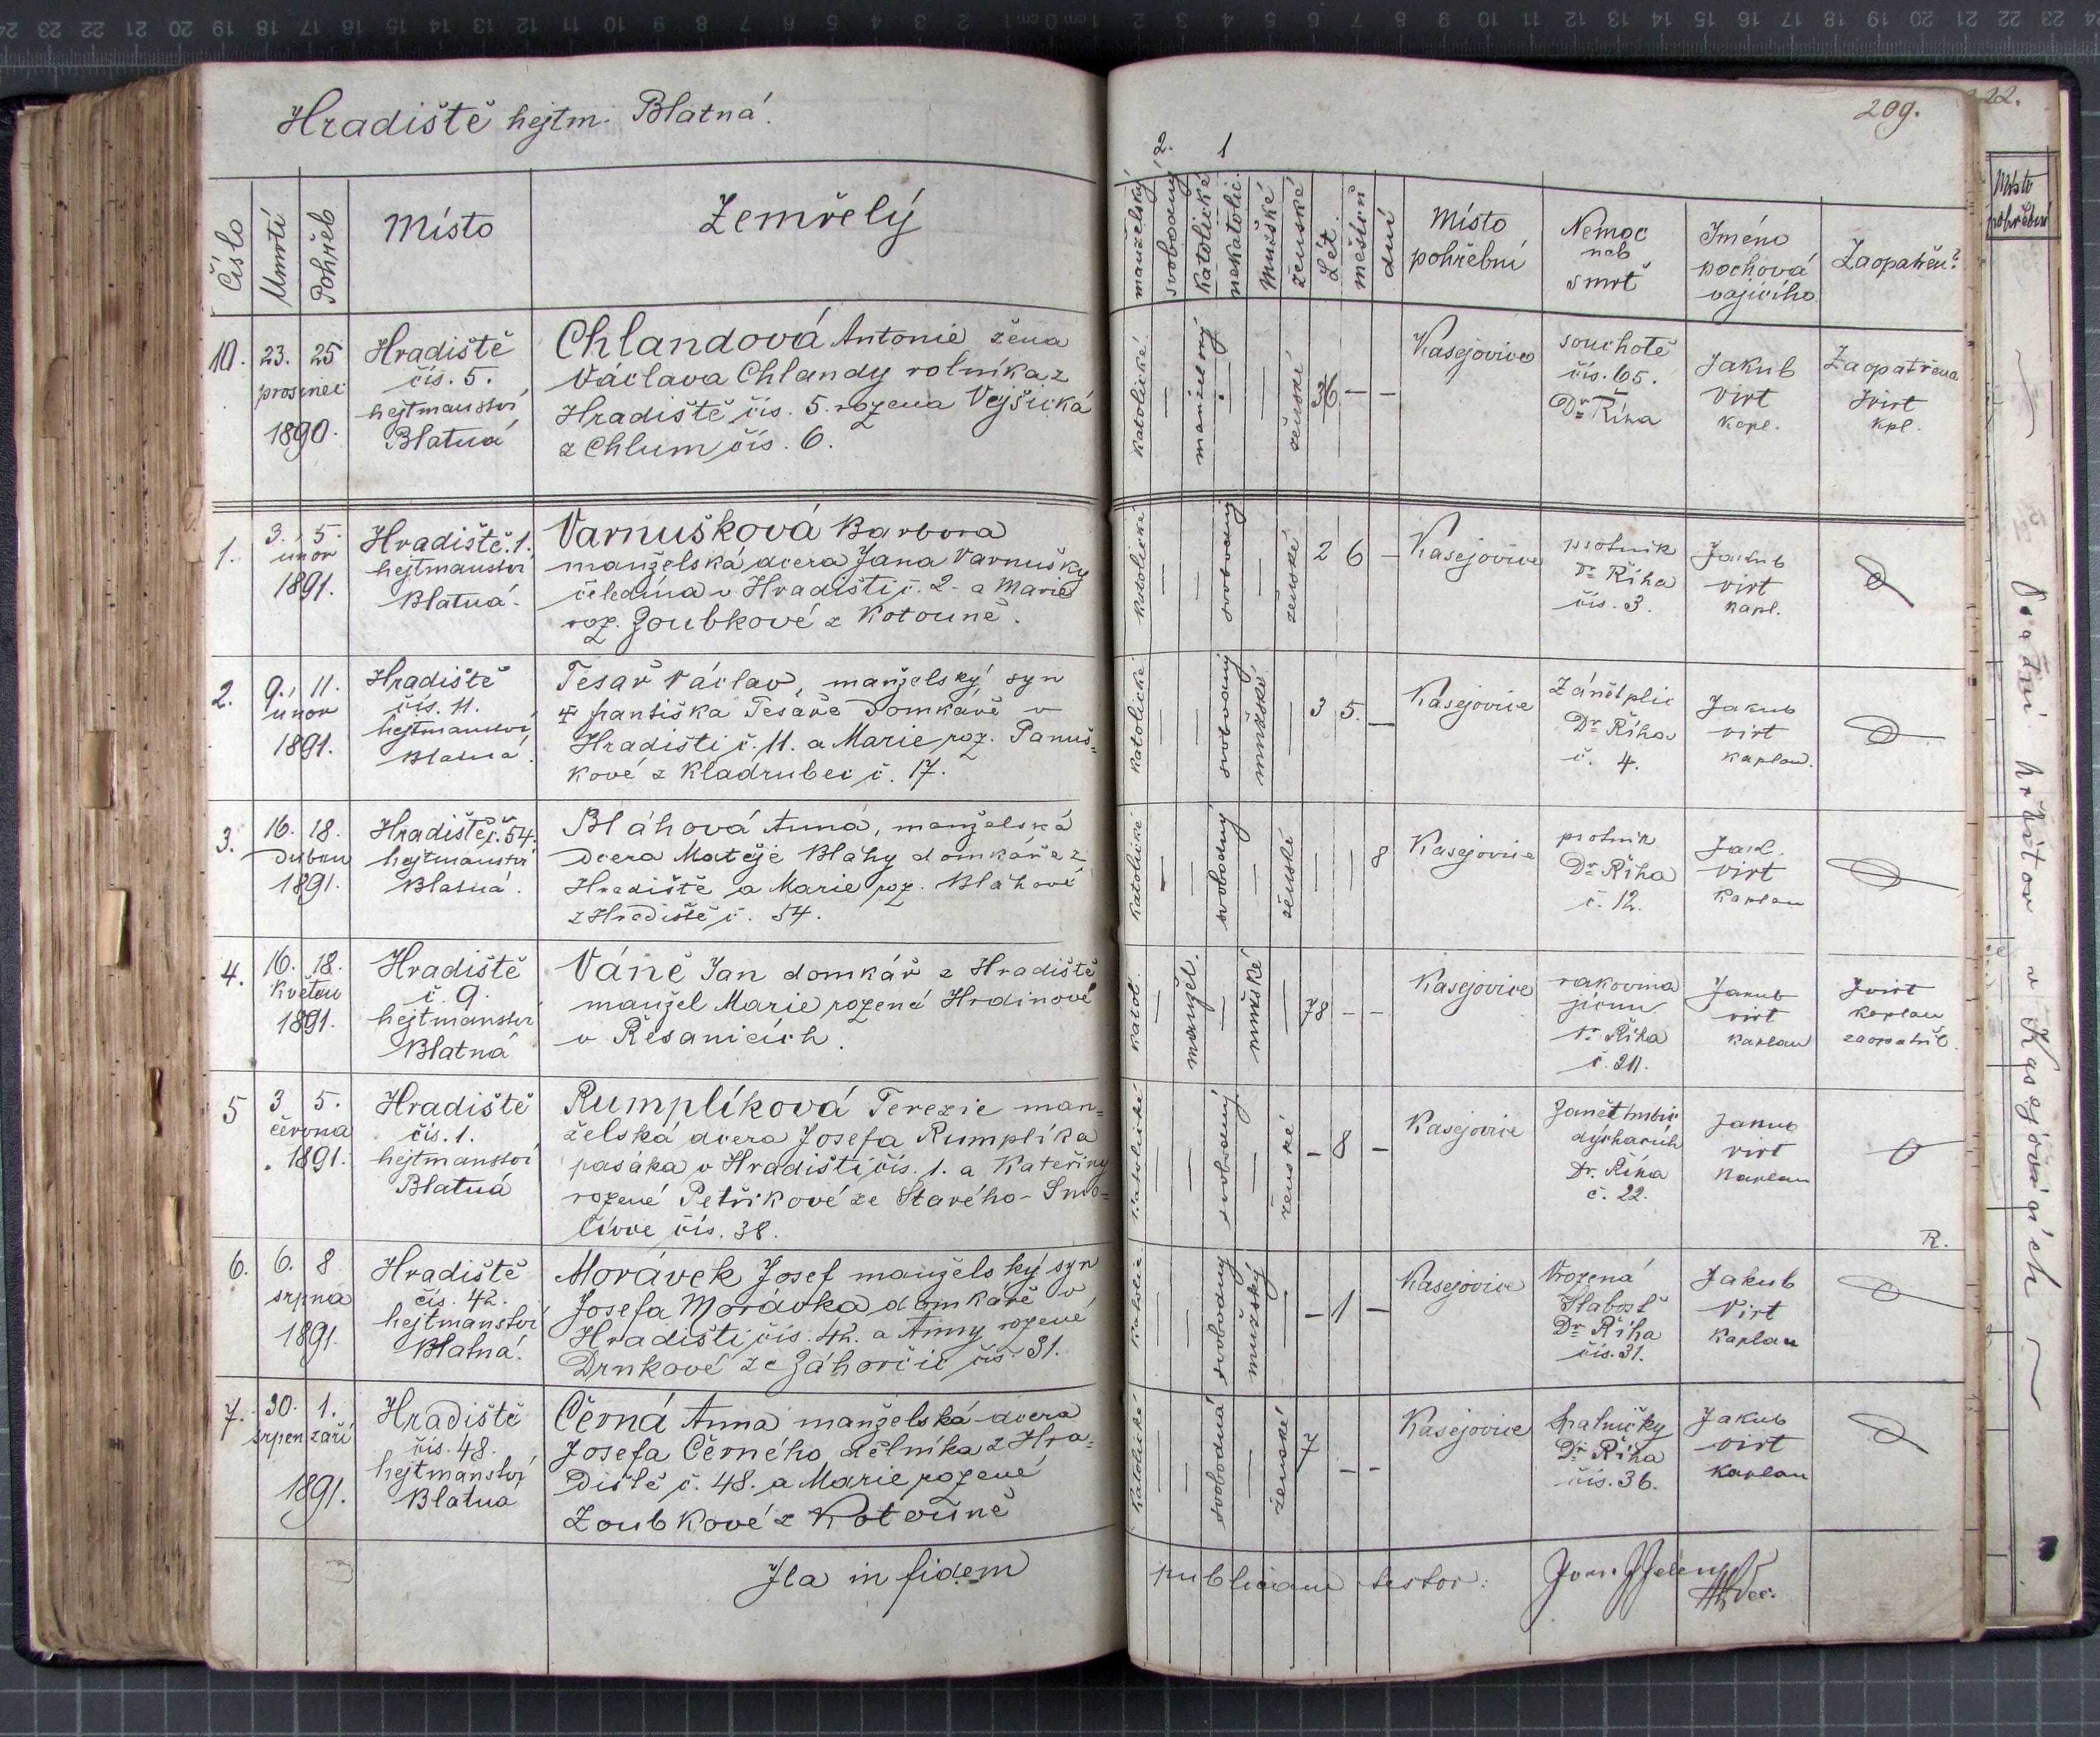 Hradiště hejtm. Blatná.
Číslo
Umrtí
Pohřeb
Místo
Zemřelý
10.
23. 25
prosinec
1890.
Hradiště
čís. 5.
hejtmanství
Blatná
Chlandová Antonie žena
Václava Chlandy rolníka z
Hradiště čís. 5. rozena Vejšická
z Chlum čís. 6.
1.
3. 5.
únor
1891.
Hradiště. 1.
hejtmanství
Blatná.
Varnušková Barbora
manželská dcera Jana Varnušky
čeledína v Hradišti č. 2. a Marie
roz. Zoubkové z Kotouně.
2.
9. 11.
únor
1891.
Hradiště
čís. 11.
hejtmanství
Blatná.
Tesař Václav, manželský syn
Františka Tesaře domkáře v
Hradišti č. 11. a Marie roz. Panuš=
kové z Kladrubec č. 17.
3.
16. 18.
Duben
1891.
Hradiště č. 54.
hejtmanství
Blatná.
Bláhová Anna, manželská
dcera Matěje Bláhy domkáře z
Hradiště a Marie roz. Bláhové
z Hradiště č. 54.
4.
16. 18.
Květen
1891.
Hradiště
č. 9.
hejtmanství
Blatná
Váně Jan domkář z Hradiště
manžel Marie rozené Hrdinové
v Řesanicích.
5
3 5.
června
1891.
Hradiště
čís. 1.
hejtmanství
Blatná
Rumplíková Terezie man=
želská dcera Josefa Rumplíka
pasáka v Hradišti čís. 1. a Kateřiny
rozené Petříkové ze Starého-Smo=
livce čís. 38.
6.
6. 8
srpna
1891.
Hradiště
čís. 42.
hejtmanství
Blatná.
Morávek Josef manželský syn
Josefa Morávka domkáře v
Hradišti čís. 42. a Anny rozené
Drnkové ze Záhorčic čís. 31.
7.
30. 1.
srpen září
1891.
Hradiště
čís. 48.
hejtmanství
Blatná
Černá Anna manželská dcera
Josefa Černého dělníka z Hra=
diště č. 48. a Marie rozené
Zoubkové z Kotouně
Ita in fidem
209.
2.
1
manželský
svobodný
katolické
nekatolic.
mužské
ženské
Let.
měsíců
dnů
Místo
pohřební
Nemoc
neb
smrť
Jméno
pochová
vajícího
Zaopatřen?
katolické
manželný
ženské
36 - -
Kasejovice
souchotě
čís. 65.
Dr Říha
Jakub
Virt
kapl.
Zaopatřena
JVirt
kpl.
katolické
svobodný
ženské
2 6 -
Kasejovice
psotník
Dr Říha
čís. 3.
Jakub
Virt
kapl.
katolické
svobodný
mužské
3 5. -
Kasejovice
Zánět plic
Dr Říha
č. 4.
Jakub
Virt
kaplan.
katolické
svobodný
ženské
8
Kasejovice
psotník
Dr Říha
č. 12.
Jak.
Virt
kaplan
katol.
manžel.
mužské
78 - -
Kasejovice
rakovina
jícnu
Dr Říha
Jakub
Virt
kaplan
JVirt
kaplan
zaopatřil.
katolické
svobodný
ženské
- 8 -
Kasejovice
Dr. Říha
č. 22.
Jakub
Virt
kaplan
R.
katolic.
svobodný
mužský
- 1 -
Kasejovice
Vrozená
Slabosť
Dr Říha
čís. 31.
Jakub
Virt
kaplan
katolické
svobodná
ženské
7 - -
Kasejovice
Spalničky
Dr Říha
čís. 36.
Jakub
Virt
kaplan
publicam testor:
22.
Místo
pohřební
hřbitov v Kasejovicích